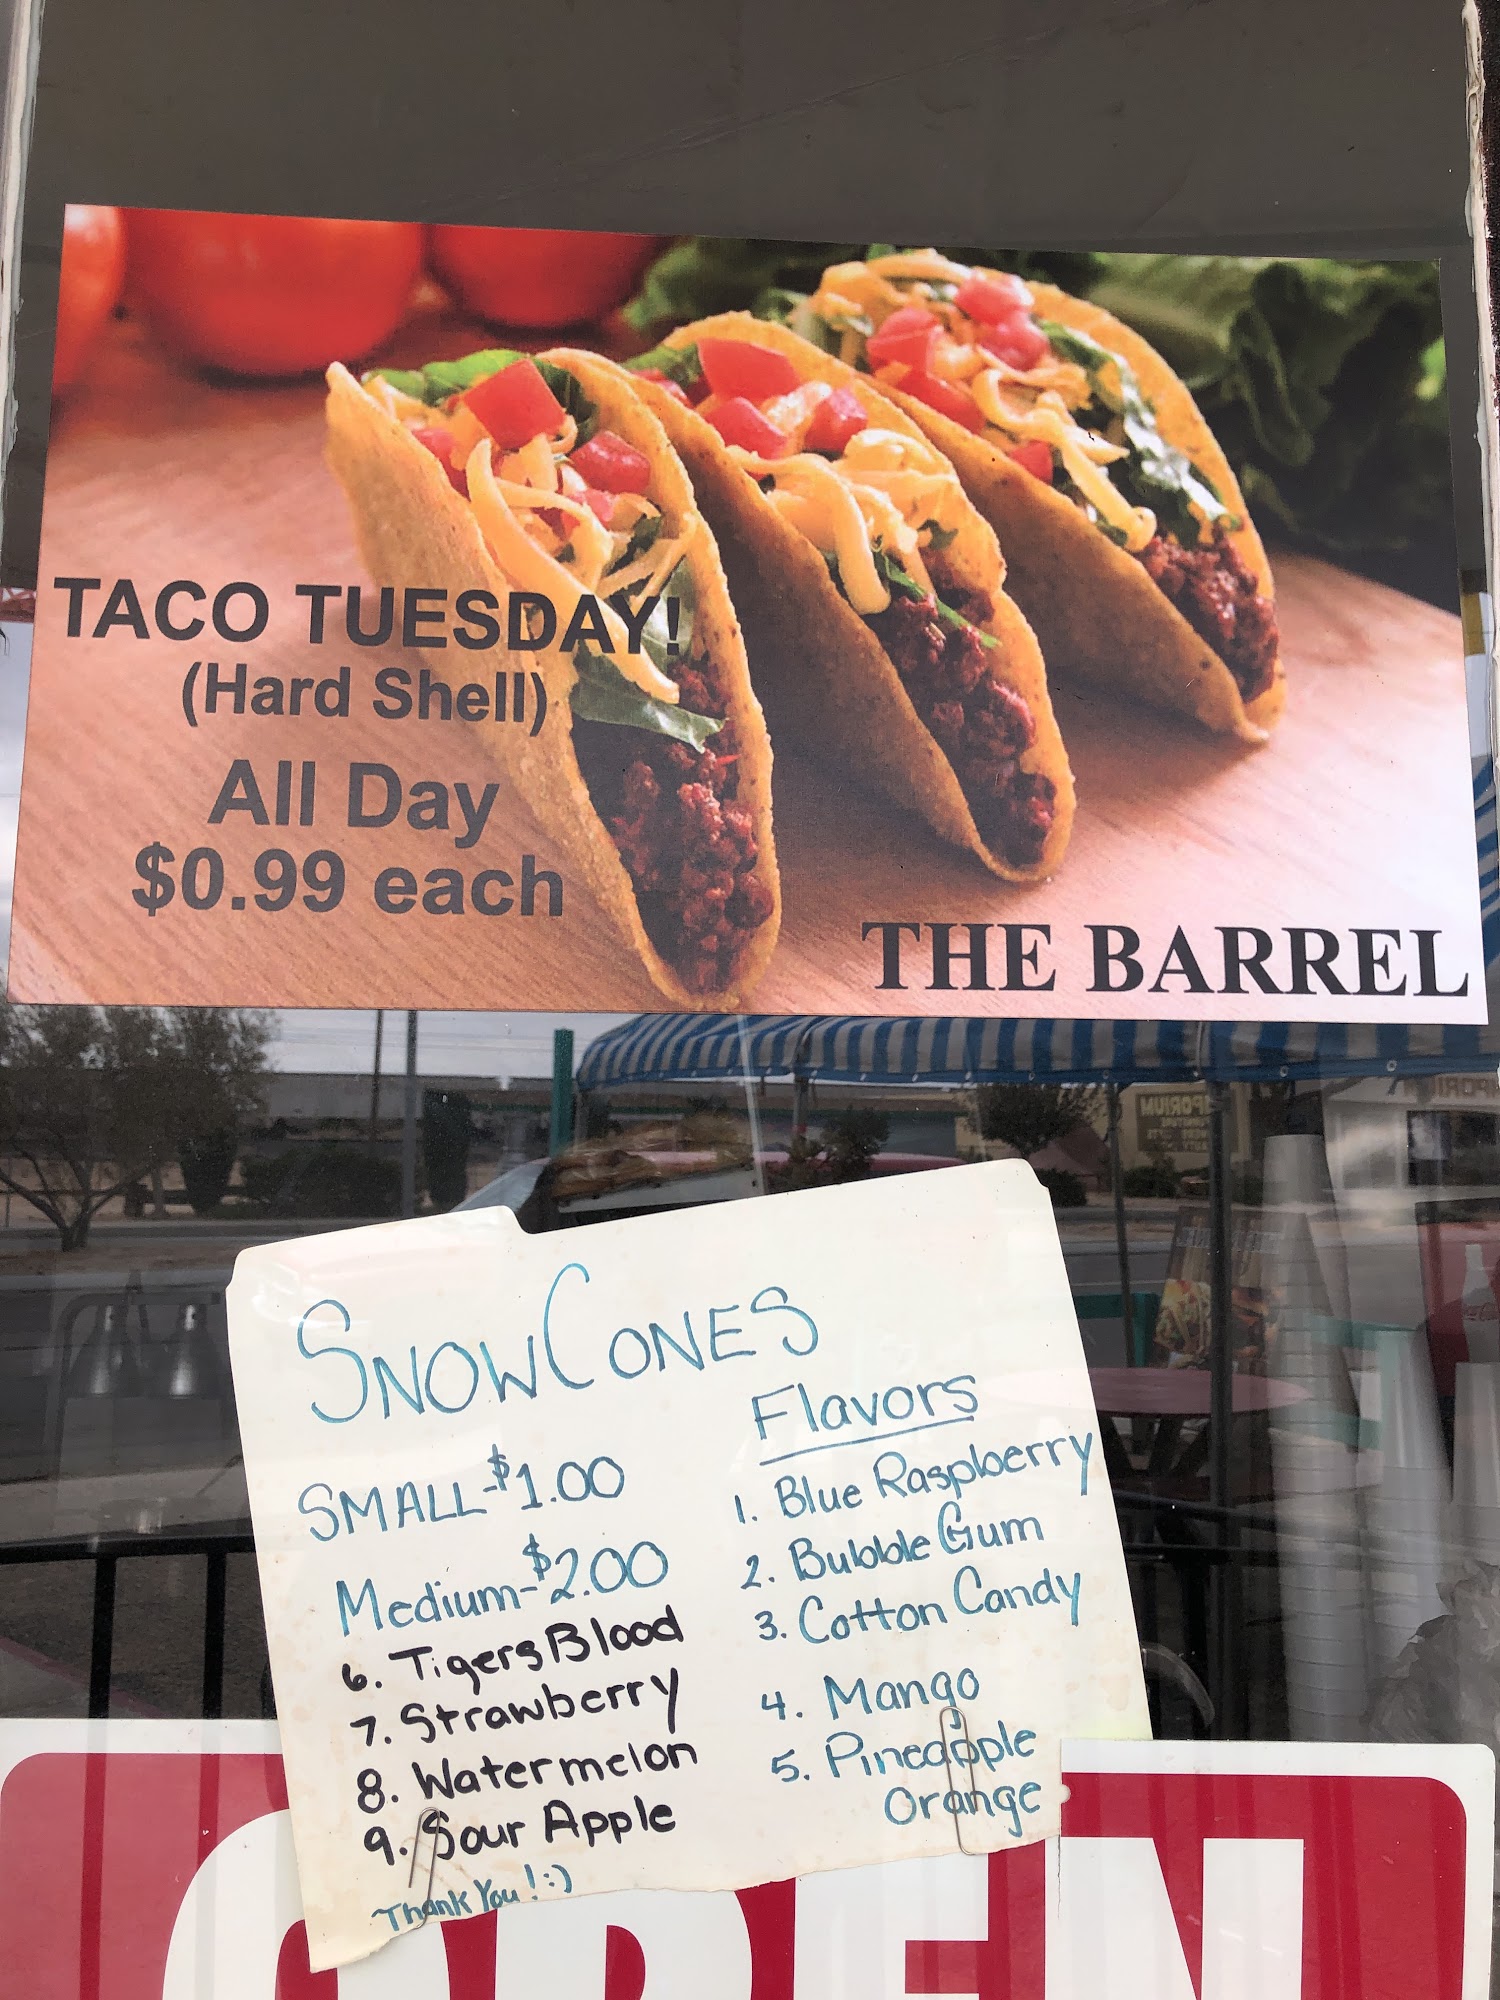 TACO TUESDAY!
(Hard Shell)
All Day
$0.99 each
THE BARREL
SNOWCONES
SMALL-$1.00
Medium-$2.00
6. Tigers Blood
7. Strawberry
8. Watermelon
9. Sour Apple
Thank You! :)
Flavors
1. Blue Raspberry
2. Bubble Gum
3. Cotton Candy
4. Mango
5. Pineapple
Orange
OPEN